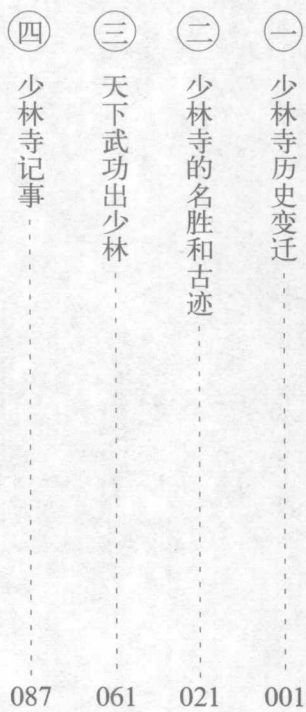 ㊀ 少林寺历史变迁 001
㊁ 少林寺的名胜和古迹 021
㊂ 天下武功出少林 061
㊃ 少林寺记事 087